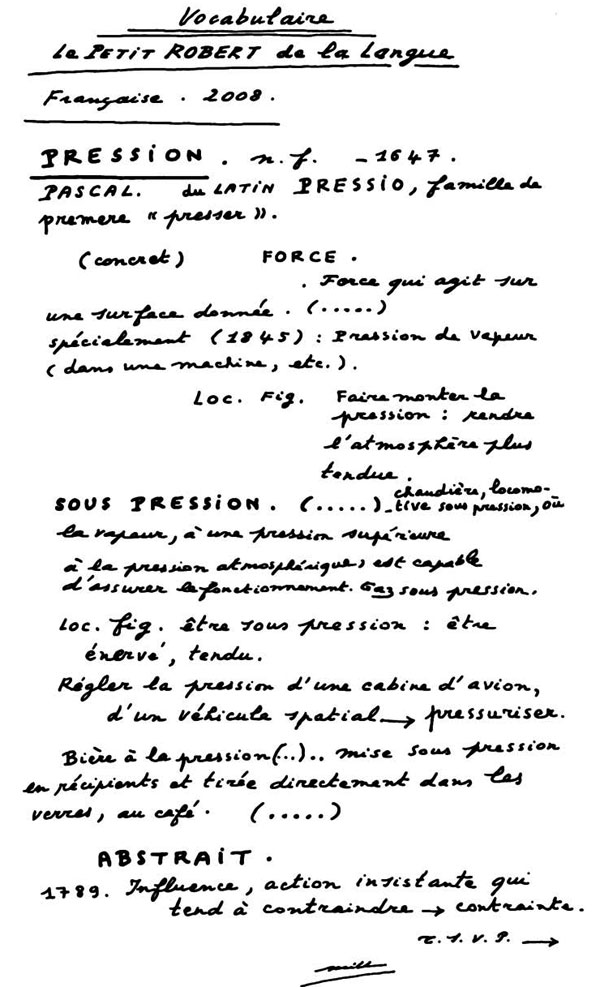 Vocabulaire
Le PETIT ROBERT de la Langue
Française . 2008 .
PRESSION . n. f. - 1647 .
PASCAL. du LATIN PRESSIO, famille de
premere « presser ».
(concret) FORCE .
. Force qui agit sur
une surface donnée . (.....)
spécialement (1845) : Pression de vapeur
(dans une machine, etc.).
Loc. Fig. Faire monter la
pression : rendre
l'atmosphère plus
tendue.
SOUS PRESSION. (.....)_ chaudière, locomo-
tive sous pression, où
la vapeur, à une pression supérieure
à la pression atmosphérique, est capable
d'assurer le fonctionnement. Gaz sous pression.
Loc. fig. être sous pression : être
énervé, tendu.
Régler la pression d'une cabine d'avion,
d'un véhicule spatial → pressuriser.
Bière à la pression(..).. mise sous pression
en récipients et tirée directement dans les
verres, au café. (.....)
ABSTRAIT .
1789. Influence, action insistante qui
tend à contraindre → contrainte.
T. S. V. P. →